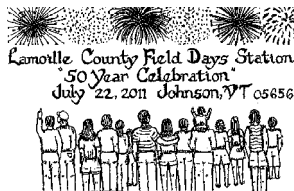 Lamoille County Field Days Station
"50 Year Celebration"
July 22, 2011 Johnson, VT 05656